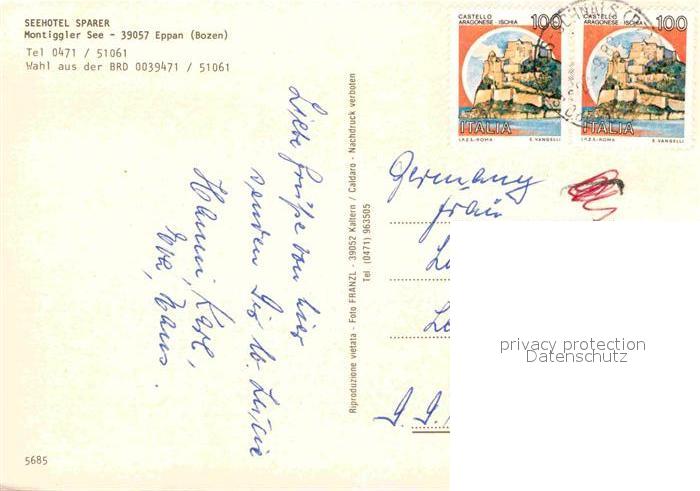 SEEHOTEL SPARER
Montiggler See - 39057 Eppan (Bozen)
Tel 0471 / 51061
Wahl aus der BRD 0039471 / 51061
Liebe Grüße von hier
senden Dir lb. Luzie
Hanni, Karl,
Eva, Hans.
5685
Riproduzione vietata - Foto FRANZL - 39052 Kaltern / Caldaro - Nachdruck verboten
Tel (0471) 963505
CASTELLO
ARAGONESE - ISCHIA
100
ITALIA
I.P.Z.S. - ROMA E. VANGELLI
CASTELLO
ARAGONESE - ISCHIA
100
ITALIA
I.P.Z.S. - ROMA E. VANGELLI
Germany
Frau
privacy protection
Datenschutz